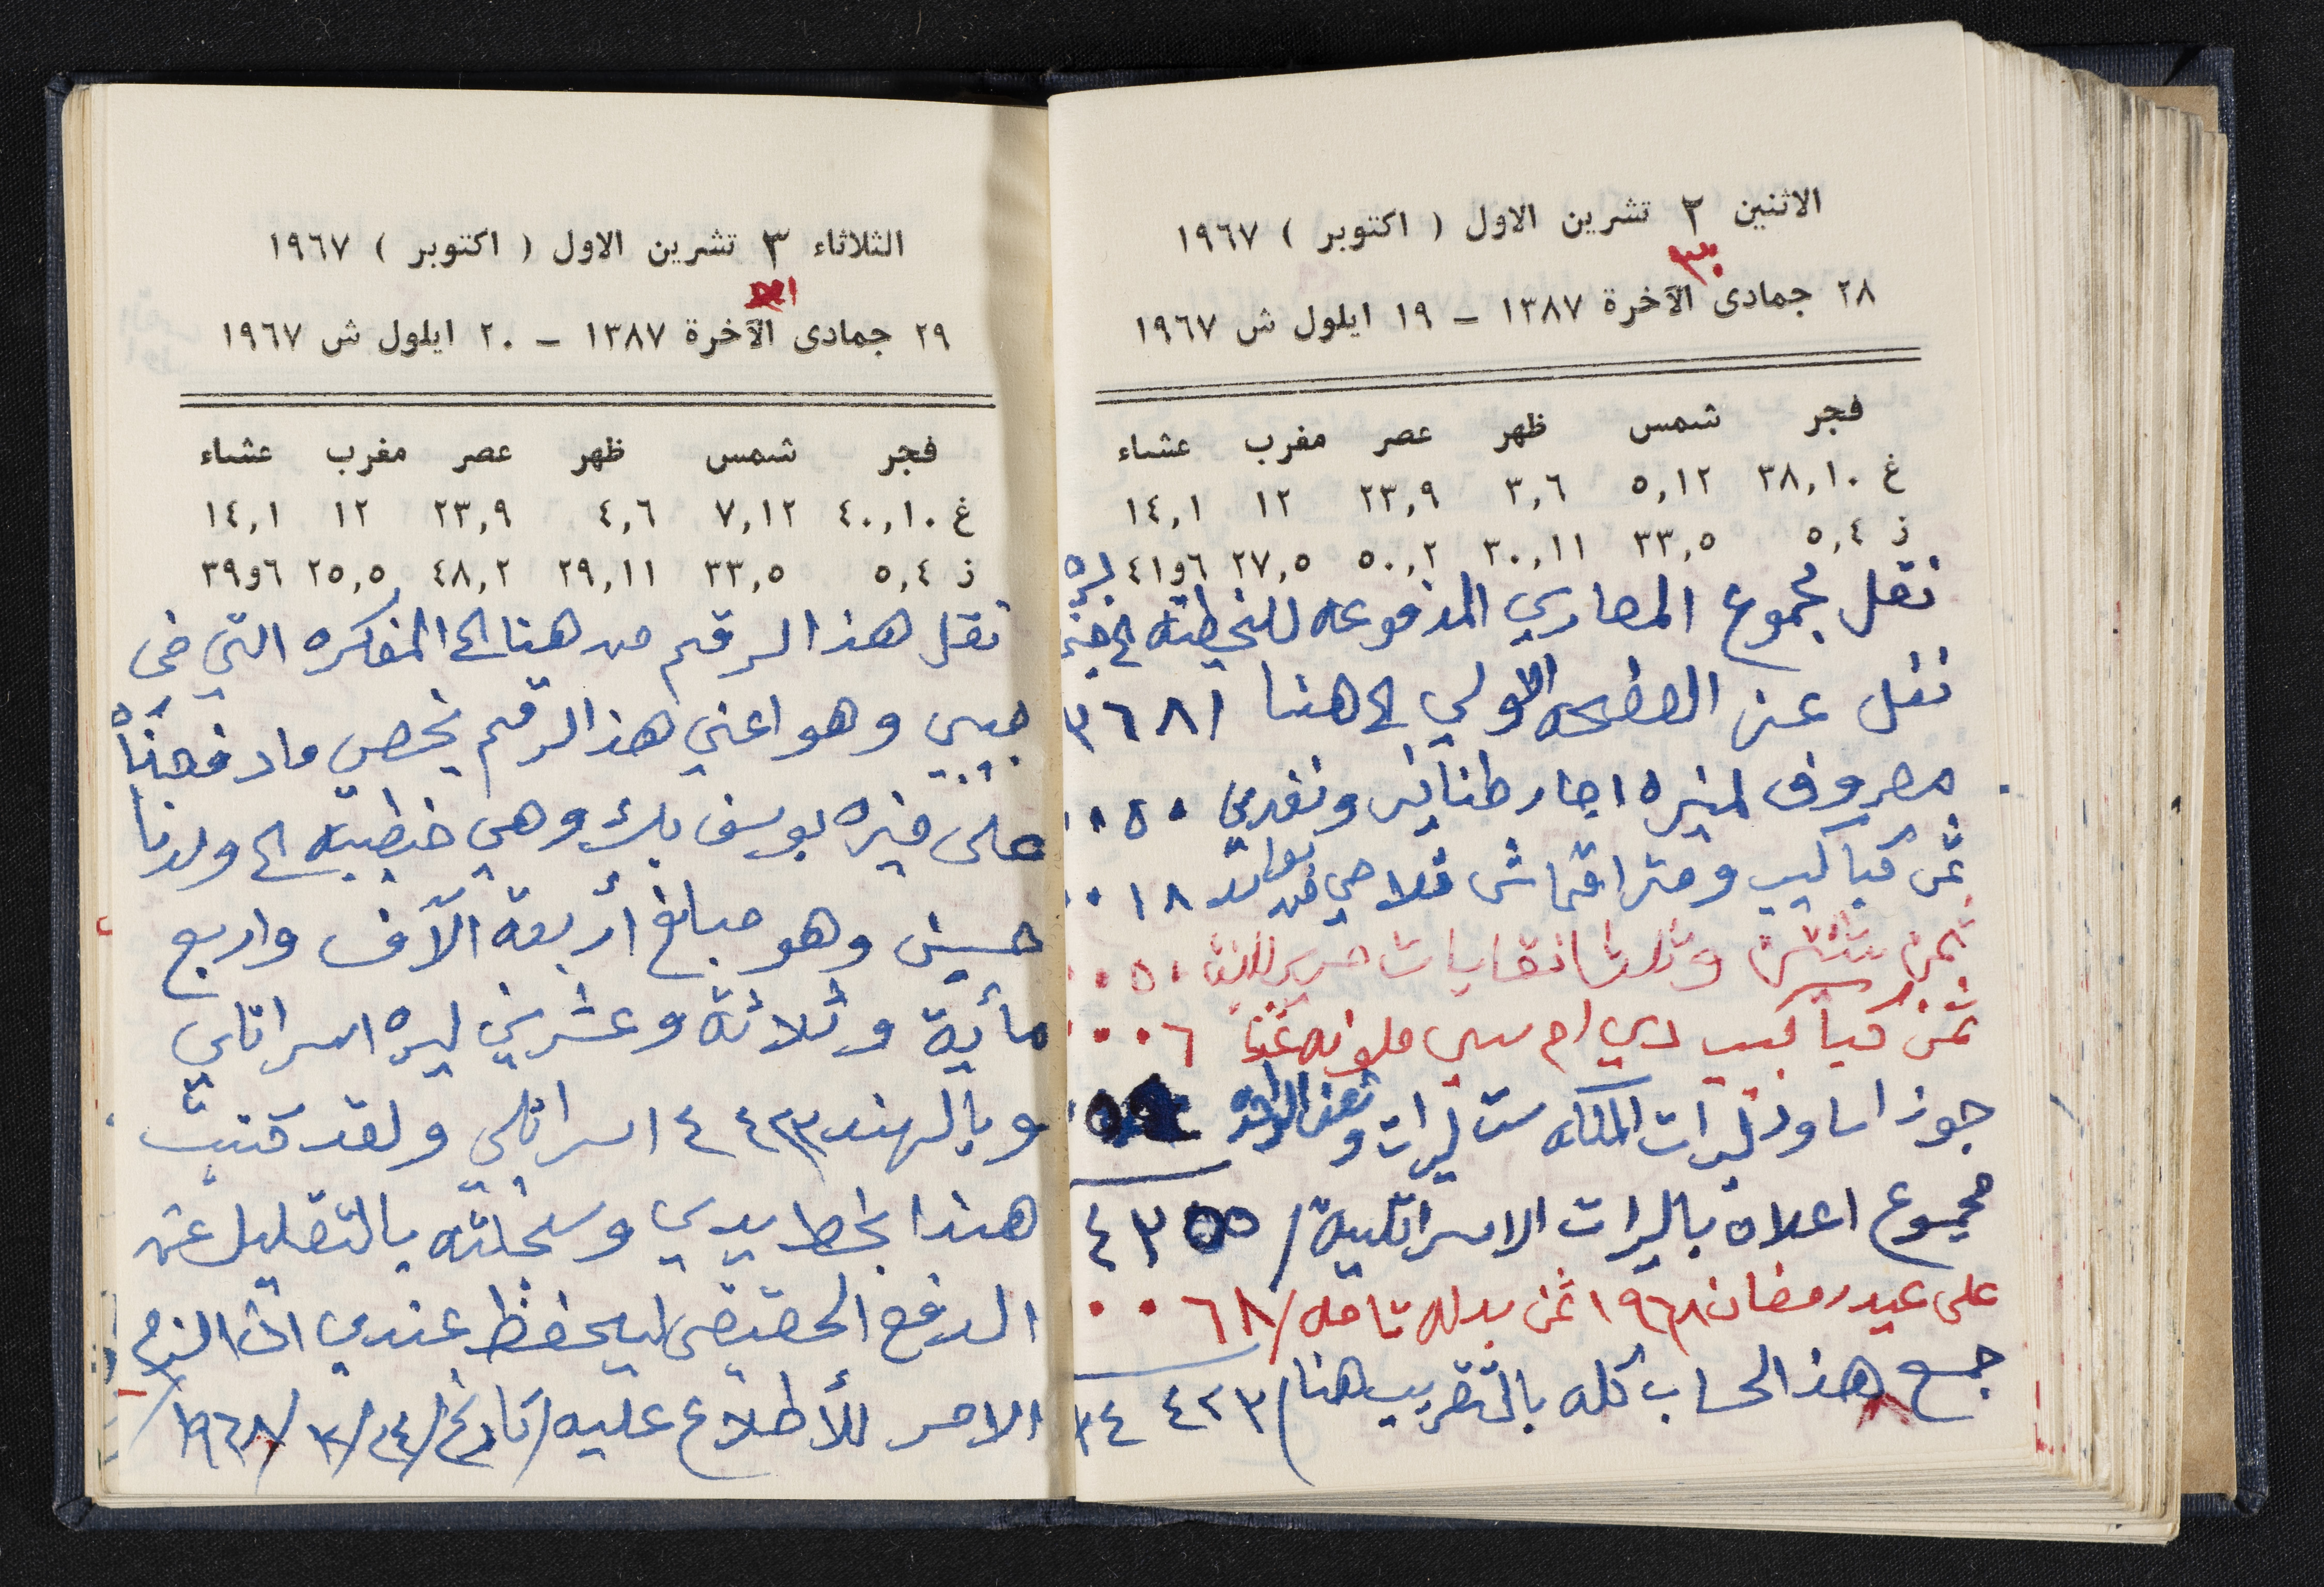 الاثنين ٢ تشرين الاول ( اكتوبر ) ١٩٦٧
٣٠
٢٨ جمادى الآخرة ١٣٨٧ - ١٩ ايلول ش ١٩٦٧
فجر شمس ظهر عصر مغرب عشاء
غ ٣٨,١٠ ٥,١٢ ٣,٦ ٢٣,٩ ١٢ ١٤,١
ز ٥,٤ ٣٣,٥ ٣٠,١١ ٥٠,٢ ٢٧,٥ ٦و٤١
نقل مجموع المصاري المدفوعه للخطبه الى
نقل عن الصفحه الاولي الى هنا ٣٦٨١
مصروف لمنيره اجار طنابر ونقدي ٠٥٠
ثمن كباكيب ومترا قماش فلاحي ٠٠١٨
ثمن وثلاث انقابات حرير ٠٠٥٠
ثمن كباكيب دي ام سي ملونه ٠٠٠٦
جوز اساور ليرات الملكه ست ليرات
مجموع اعلاه باليرات الاسرائلية / ٤٣٥٥
على عيد رمضان ١٩٦٨ ثمن بدله تامه / ٠٠٦٨
جمع هذا الحساب كله بالتقريب هنا / ٤٤٢٣
الثلاثاء ٣ تشرين الاول ( اكتوبر ) ١٩٦٧
٢٩ جمادى الآخرة ١٣٨٧ - ٢٠ ايلول ش ١٩٦٧
فجر شمس ظهر عصر مغرب عشاء
غ ٤٠,١٠ ٧,١٢ ٤,٦ ٢٣,٩ ١٢ ١٤,١
ز ٥,٤ ٣٣,٥ ٢٩,١١ ٤٨,٢ ٢٥,٥ ٦و٣٩
نقل هذا الرقم من هنا الى المفكره التي في
جيبي وهو اعني هذا الرقم يخص ما دفعناه
على منيره يوسف بك وهي خطيبه الى ولدنا
حسين وهو مبلغ أربعة الآف واربع
مأية وثلاثة وعشرين ليره اسرائلي
وبالهند ٤٤٢٣ اسرائلي ولقد كتبت
هذا بخط يدي وسجلته بالتقليل عن
الدفع الحقيقي ليحفظ عندي اذا لزم
الامر للأطلاع عليه / تاريخ / ٢٤ / ٣ / ١٩٦٨